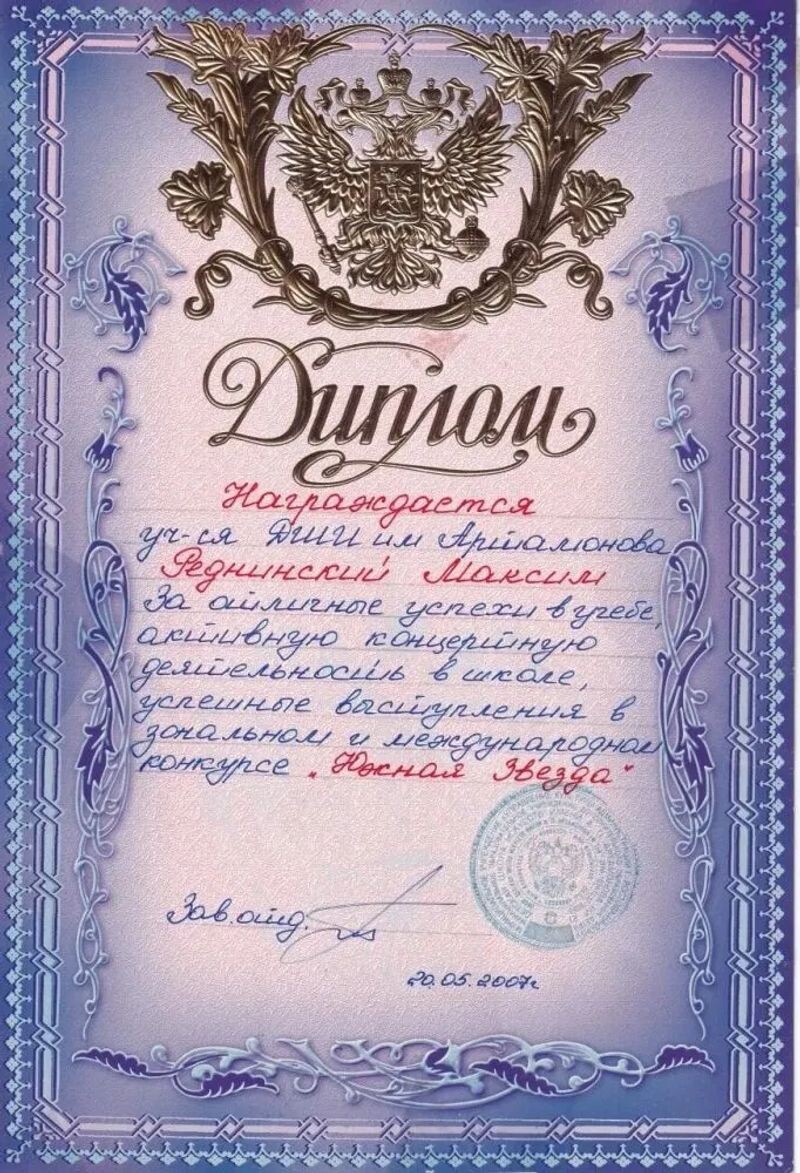 Диплом
Награждается
уч-ся ДШИ им Артамонова
Реднинский Максим
За отличные успехи в учебе,
активную концертную
деятельность в школе,
успешные выступления в
зональном и международном
конкурсе „Южная Звезда"
Зав. отд.
20.05.2007г